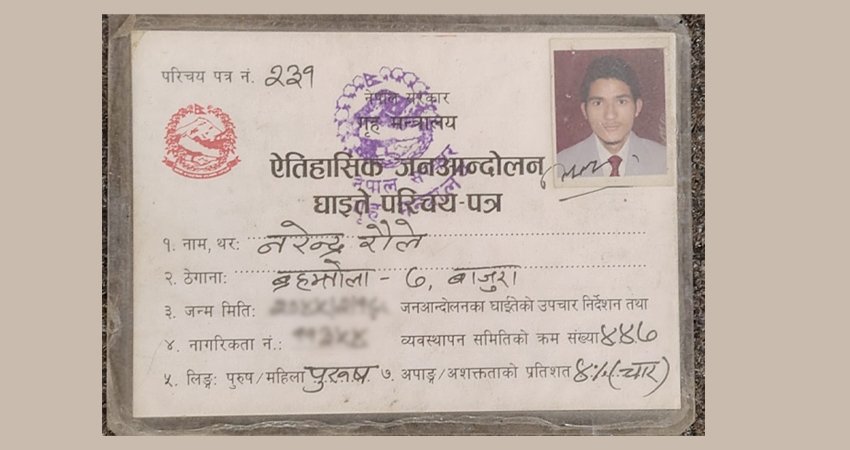 परिचय पत्र नं. २३१
नेपाल सरकार
गृह मन्त्रालय
ऐतिहासिक जनआन्दोलन
घाइते परिचय-पत्र
नेपाल सरकार
गृह मन्त्रालय
१. नाम, थर: नरेन्द्र रौले
२. ठेगाना: ब्रहमतोला - ७, बाजुरा
३. जन्म मिति: जनआन्दोलनका घाईतेको उपचार निर्देशन तथा
४. नागरिकता नं.: व्यवस्थापन समितिको क्रम संख्या ४४७
५. लिङ्ग: पुरुष/महिला पुरुष ७. अपाङ्ग/अशक्तताको प्रतिशत ४% (चार)